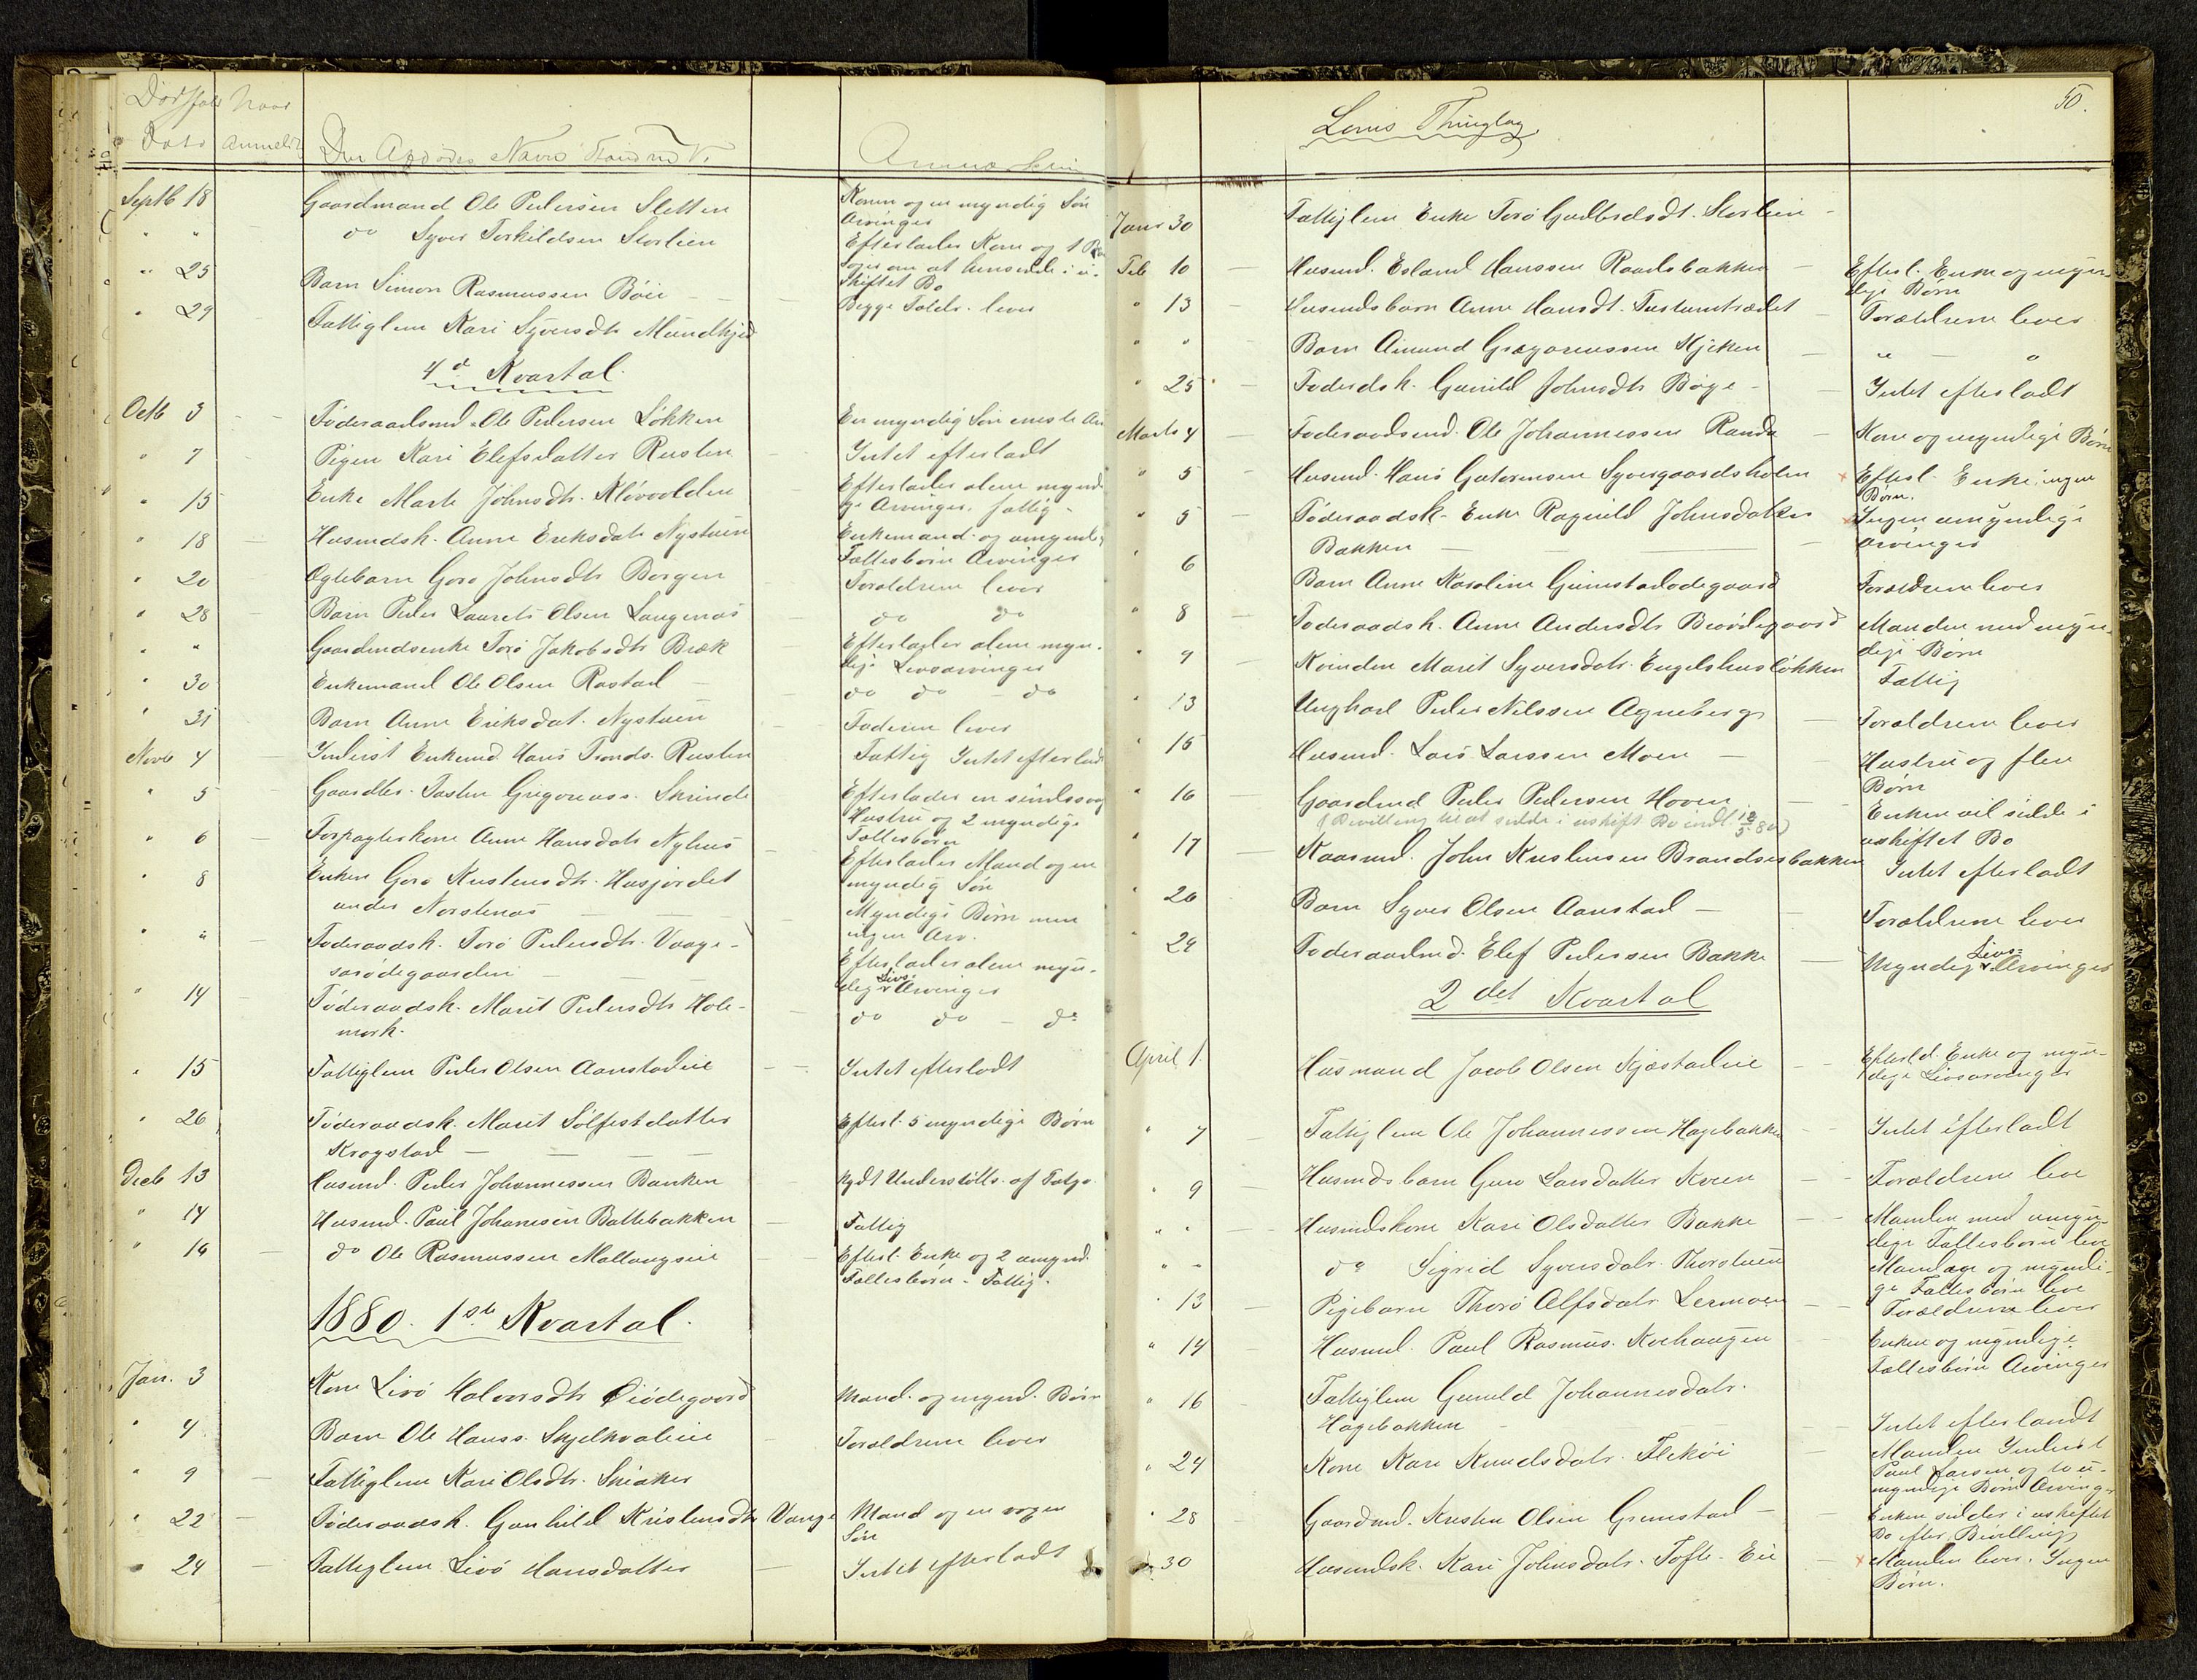 Dødsfald Naar
Dato Anmeldt Den Afdødes Navn Stand m V. Anmærkning
Septb 18 Gaardmand Ole Pedersen Sletten Konen og en myndig Søn Arvinger
" " do Syver Torkildsen Storlien Efterlader Kone og 1 Barn
at hensidde i u-
skiftet Bo
" 25 Barn Simon Rasmussen Böie Begge Foldr. lever
" 29 Fattiglem Kari Syversdtr
4de Kvartal.
Octb 3 Föderaadsmd. Ole Pedersen Løkken En myndig Søn eneste Arv
" 7 Pigen Kari Elefsdatter Rusten Intet efterladt
" 15 Enke Marte Johnsdtr. Klövvolden Efterlader alene mynd-
ge Arvinger, fattig -
" 18 Husmdsk. Anne Eriksdatr Nystuen Enkemand og umynd.
Fællesbörn Arvinger
" 20 Ægtebarn Goro Johnsdtr Borgen Forældrene lever
" 28 Barn Peder Laurets Olsen Laugenæs do do
" " Gaardmdsenke Torö Jakobsdtr Bræk Efterlader alene myn-
dige Livsarvinger
" 30 Enkemand Ole Olsen Rastad do do - do
" 31 Barn Anne Eriksdat. Nystuen Faderen lever
Novb 4 Inderst Enkemd. Hans Tronds. Rusten Fattig Intet efterladt
" 5 Gaardbr. Tosten Gregoriuss. Skrinde Efterlader en sindssvag
Hustru og 2 myndige
Fællesbørn
" 6 Forpagterkone Anne Hansdatr Nyhus Efterlader Mand og en
myndig Søn
" 8 Enken Goro Kristensdtr. Husjordet Myndige Børn men
under Norstenæs ingen Arv.
" " Föderaadsk. Torö Pedersdtr. Vaage- Efterlader alene myn-
sarödegaarden dige Livs Arvinger
" 14 Föderaadsk. Marit Pedersdtr Hole- do do - do
mork.
" 15 Fattiglem Peder Olsen Aanstadeie Intet efterladt
" 26 Föderaadsk. Marit Sölfestdatter Efterl. 5 myndige Børn
Krogstad
Decb 13 Husmd. Peder Johannessen Banken Nydt Understøtts. af Fatgv.
" 14 Husmd. Paul Johannesen Bakkebakken Fattig
" 16 do Ole Rasmussen Mallaugseie Efterl. Enke og 2 umynd.
Fællesbørn - Fattig.
1880. 1ste Kvartal.
Jan. 3 Kone Livö Halvorsdtr Öiödegaard Mand og mynd. Børn
" 4 Barn Ole Hanss. Skjelkvaleie Forældrene lever
" 9 Fattiglem Kari Olsdtr. Sneaker
" 22 Föderaadsk. Gunhild Kristensdtr Vange Mand og en voxen
Søn
" 24 Fattiglem Livö Hansdatter Intet efterladt
50.
Loms Thinglag.
Janr 30 Fattiglem Enke Torö Gudbrdsdt. Storlien
Feb 10 Husmd. Erland Hanssen Raadsbakken Efterl. Enke og myn-
dige Børn
" 13 Husmdsbarn Anne Hansdt. Forældrene lever
" " Barn Amund Gregoriussen Kjæken " - "
" 25 Foderdsk. Gunild Johnsdtr Böye Intet efterladt
Marts 4 Foderaadsmd. Ole Johannessen Randa Kone og myndige Børn
" 5 Husmd. Hans Guttormsen Syvergaardsholen Efterl. Enke, ingen
Børn.
" 5 Föderaadsk. Enke Ragnild Johnsdatter Ingen umyndige
Bakken Arvinger
" 6 Barn Anne Karoline Grimstadødegaard Forældrene lever
" 8 Foderaadsk. Anne Andersdtr Manden med myn-
dige Børn
" 9 Kvinden Marit Syversdatr. Engelshusløkken Fattig
" 13 Ungkarl Peder Nilssen Agneberg Forældrene lever
" 15 Husmd. Lars Larssen Moen Hustru og flere
Børn
" 16 Gaardmd Peder Pedersen Hoven Enken vil sidde i
(Bevilling til at sidde i uskift. Bo indl. 12/5 80) uskiftet Bo
" 17 Kaarmd. John Kristensen Brandsarbakken Intet efterladt
" 20 Barn Syver Olsen Aanstad Forældrene lever
" 24 Foderaadmd. Elef Pedersen Bakke Myndige Livs- Arvinger
2det Kvartal
April 1. Husmand Jacob Olsen Kjæstadeie Efterld. Enke og myn-
dige Livsarvinger
" 7 Fattiglem Ole Johannessen Hagebakken Intet efterladt
" 9 Husmdsbarn Guro Larsdatter Kveen Forældrene leve
" " Husmdskone Kari Olsdatter Bakke Manden med umyn-
dige Fællesbørn leve
" " do Sigrid Syversdatr. Thorstuen Manden og myndi-
ge Fællesbørn leve
" 13 Pigebarn Thorö Alfsdatr Lermoen Forældrene lever
" 14 Husmd. Paul Rasmus. Kvehaugen Enken og myndige
Fællesbørn Arvinger
" 16 Fattiglem Gunild Johannesdatr.
Hagebakken Intet efterladt
" 24 Kone Kari Knudsdatr. Flekøi Manden Inderst
Paul Larsen og to u-
myndige Børn Arvinger
" 28 Gaardmd. Kristen Olsen Grimstad Enken sidder i uskiftet
Bo efter Bevilling
" 30 Husmdsk. Kari Johnsdatr. Tofte-Eie Manden lever. Ingen
Børn.